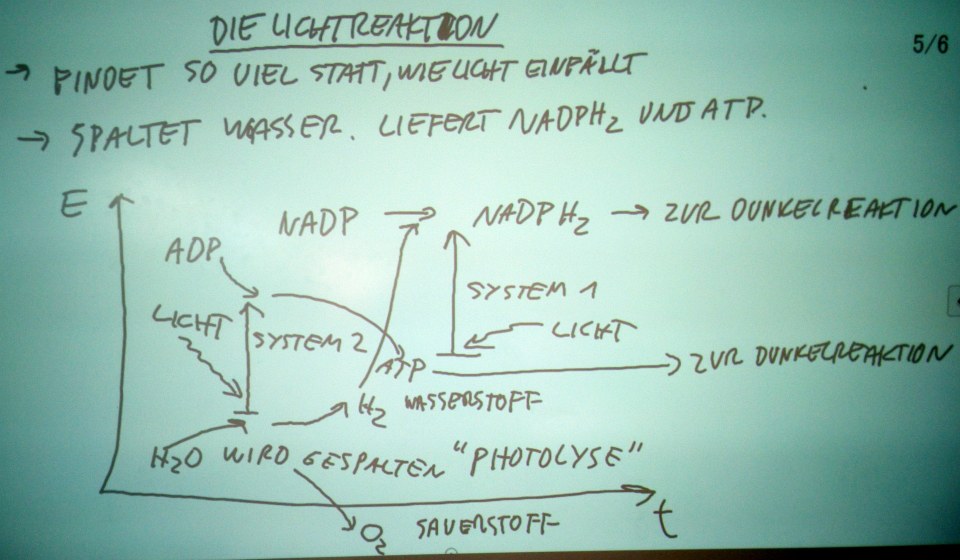 DIE LICHTREAKTION
5/6
→ FINDET SO VIEL STATT, WIE LICHT EINFÄLLT
→ SPALTET WASSER. LIEFERT NADPH₂ UND ATP.
E
NADP → NADPH₂ → ZUR DUNKELREAKTION
ADP
SYSTEM 1
LICHT
SYSTEM 2
LICHT
ATP → ZUR DUNKELREAKTION
H₂ WASSERSTOFF
H₂O WIRD GESPALTEN "PHOTOLYSE"
O₂ SAUERSTOFF
t